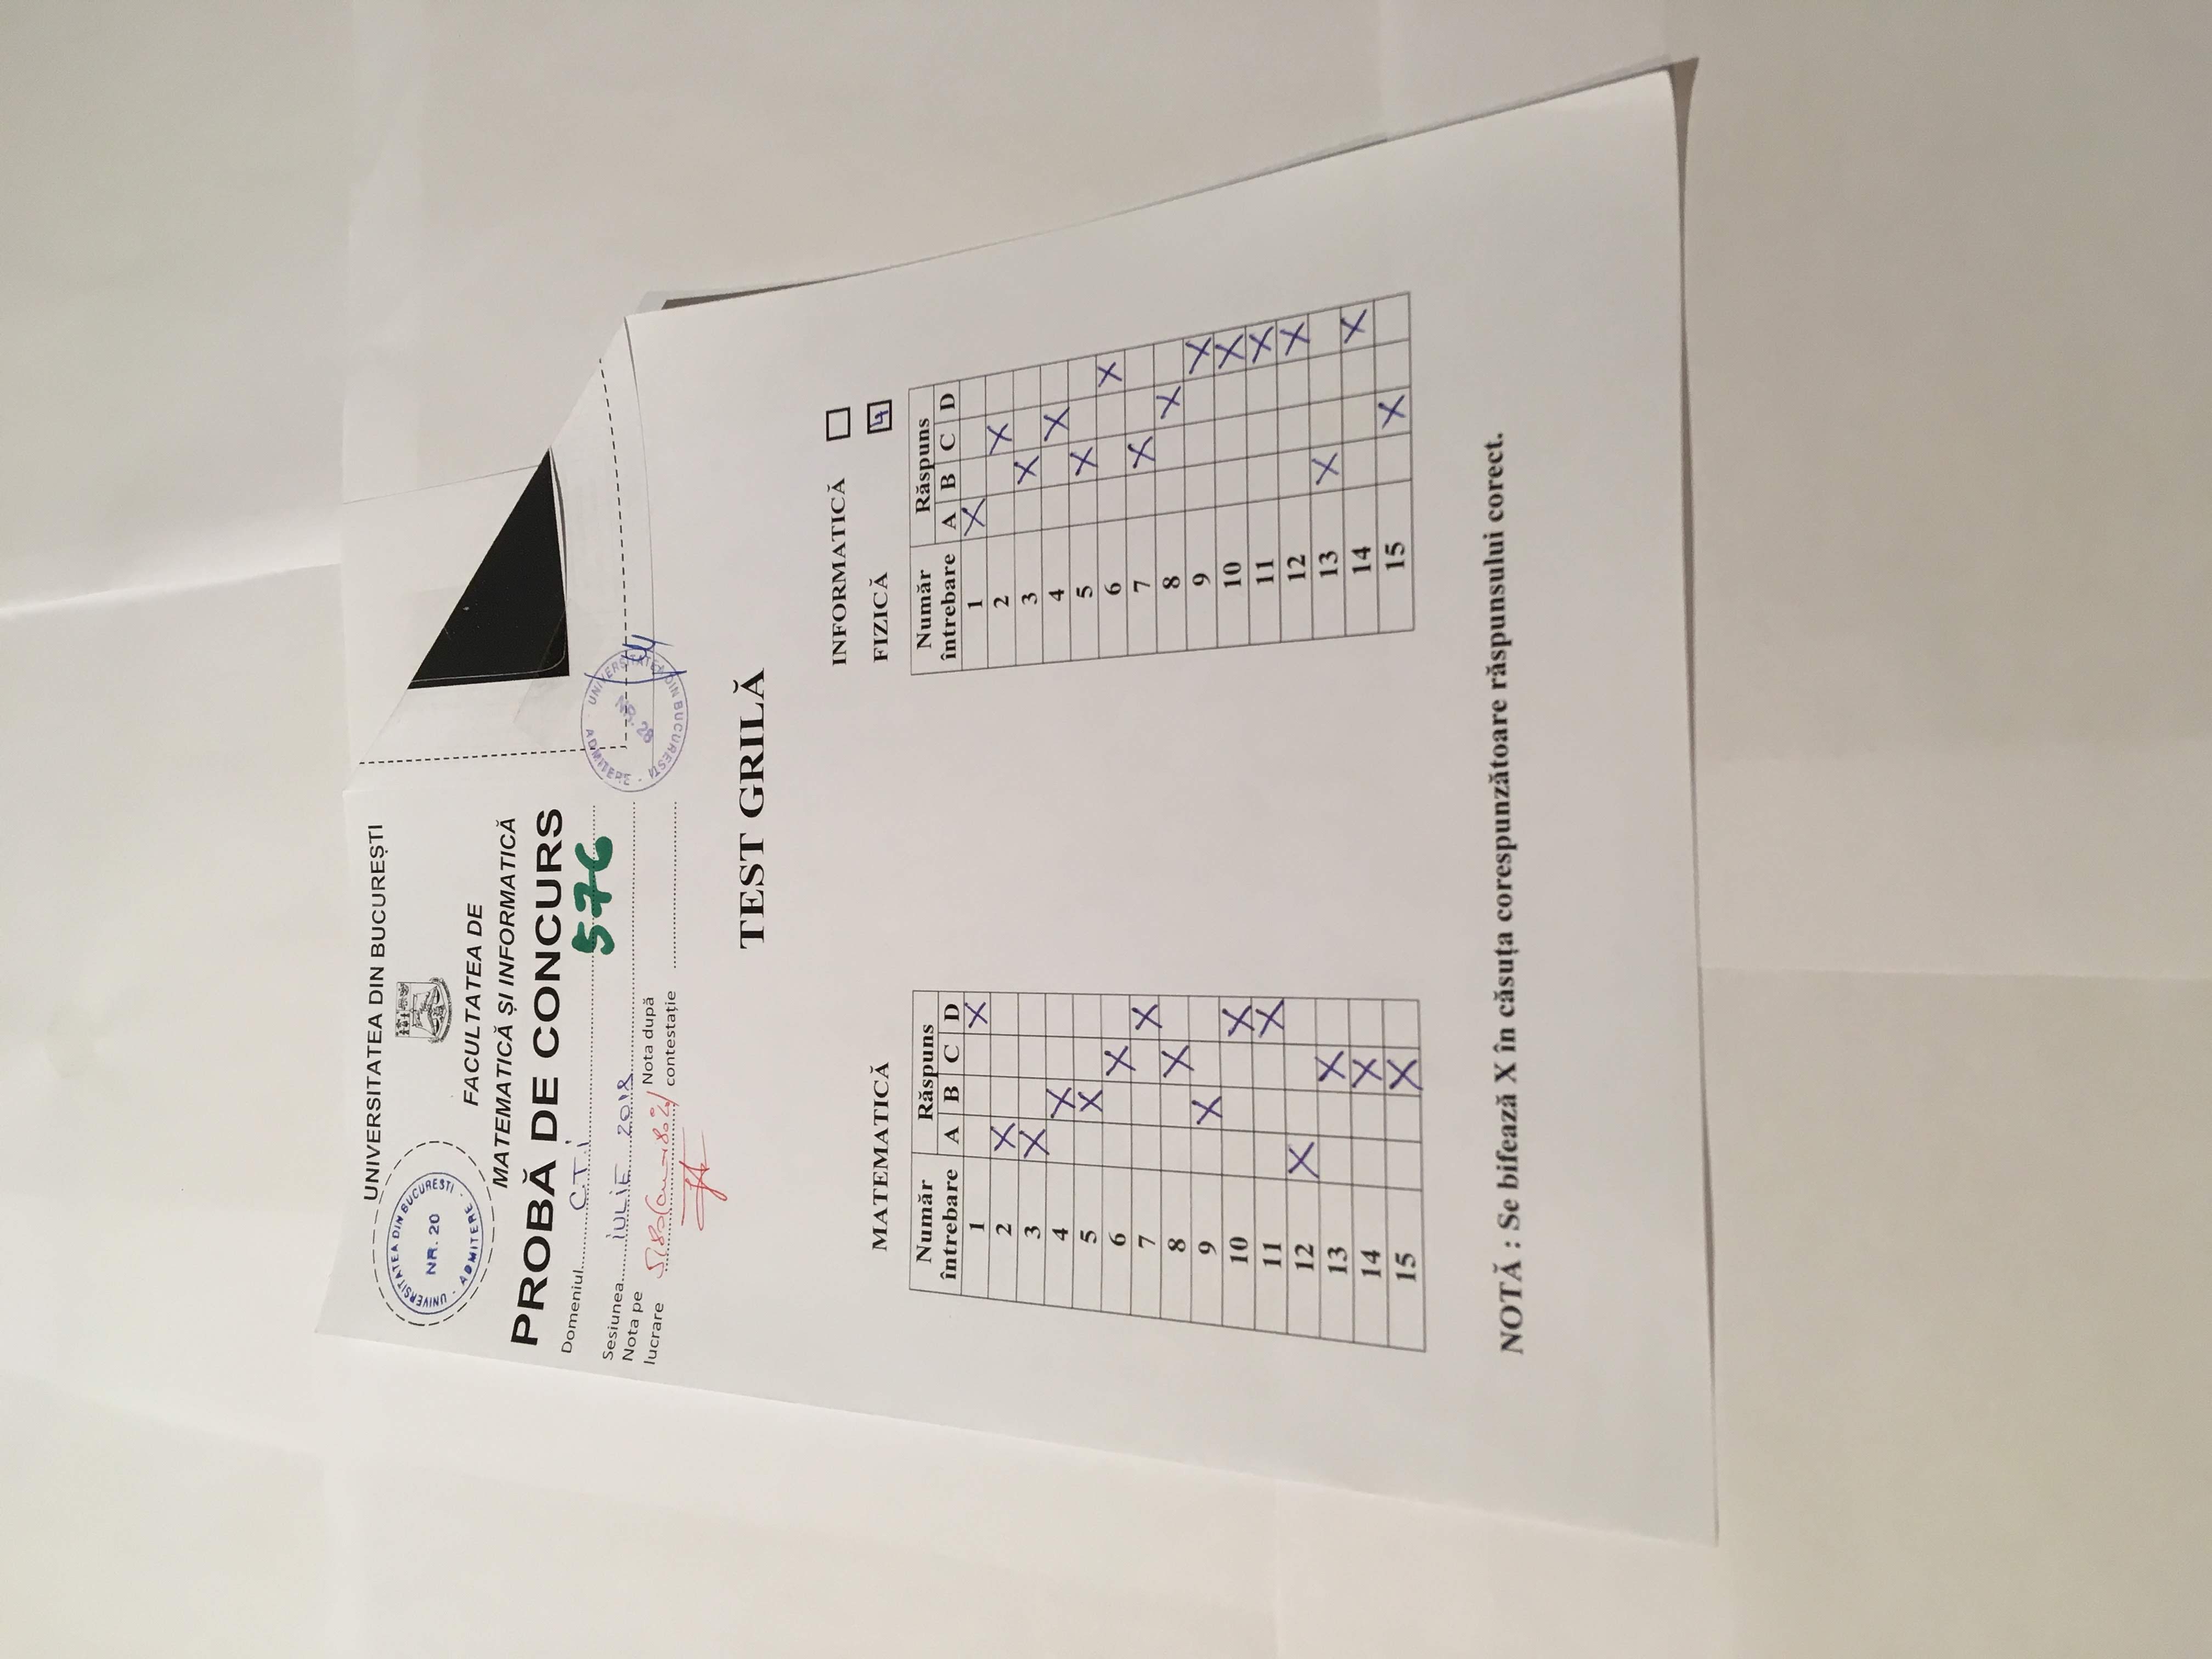 UNIVERSITATEA DIN BUCUREȘTI
UNIVERSITATEA DIN BUCURESTI
NR. 20
ADMITERE
FACULTATEA DE
MATEMATICĂ ȘI INFORMATICĂ
PROBĂ DE CONCURS
Domeniul C.T.i
576
Sesiunea iULiE 2018
Nota pe lucrare 5,80
Nota după contestație
UNIVERSITATEA DIN BUCURESTI
NR. 28
ADMITERE
TEST GRILĂ
INFORMATICĂ
MATEMATICĂ
FIZICĂ 4
Număr întrebare Răspuns
A B C D
1 X
2 X
3 X
4 X
5 X
6 X
7 X
8 X
9 X
10 X
11 X
12 X
13 X
14 X
15 X
Număr întrebare Răspuns
A B C D
1 X
2 X
3 X
4 X
5 X
6 X
7 X
8 X
9 X
10 X
11 X
12 X
13 X
14 X
15 X
NOTĂ : Se bifează X în căsuța corespunzătoare răspunsului corect.